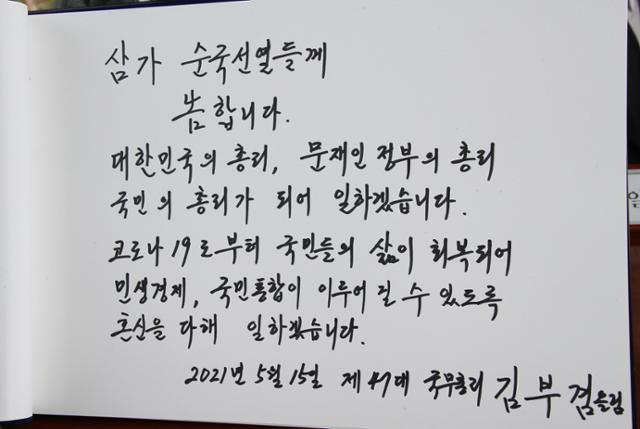 삼가 순국선열들께
합니다.
대한민국의 총리, 문재인 정부의 총리
국민의 총리가 되어 일하겠습니다.
코로나19로부터 국민들의 삶이 회복되어
민생경제, 국민통합이 이루어 질 수 있도록
혼신을 다해 일하겠습니다.
2021년 5월 15일 제47대 국무총리 김부겸 올림